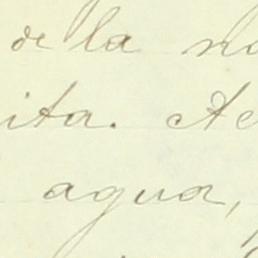 de la
ita. Ac
agua,